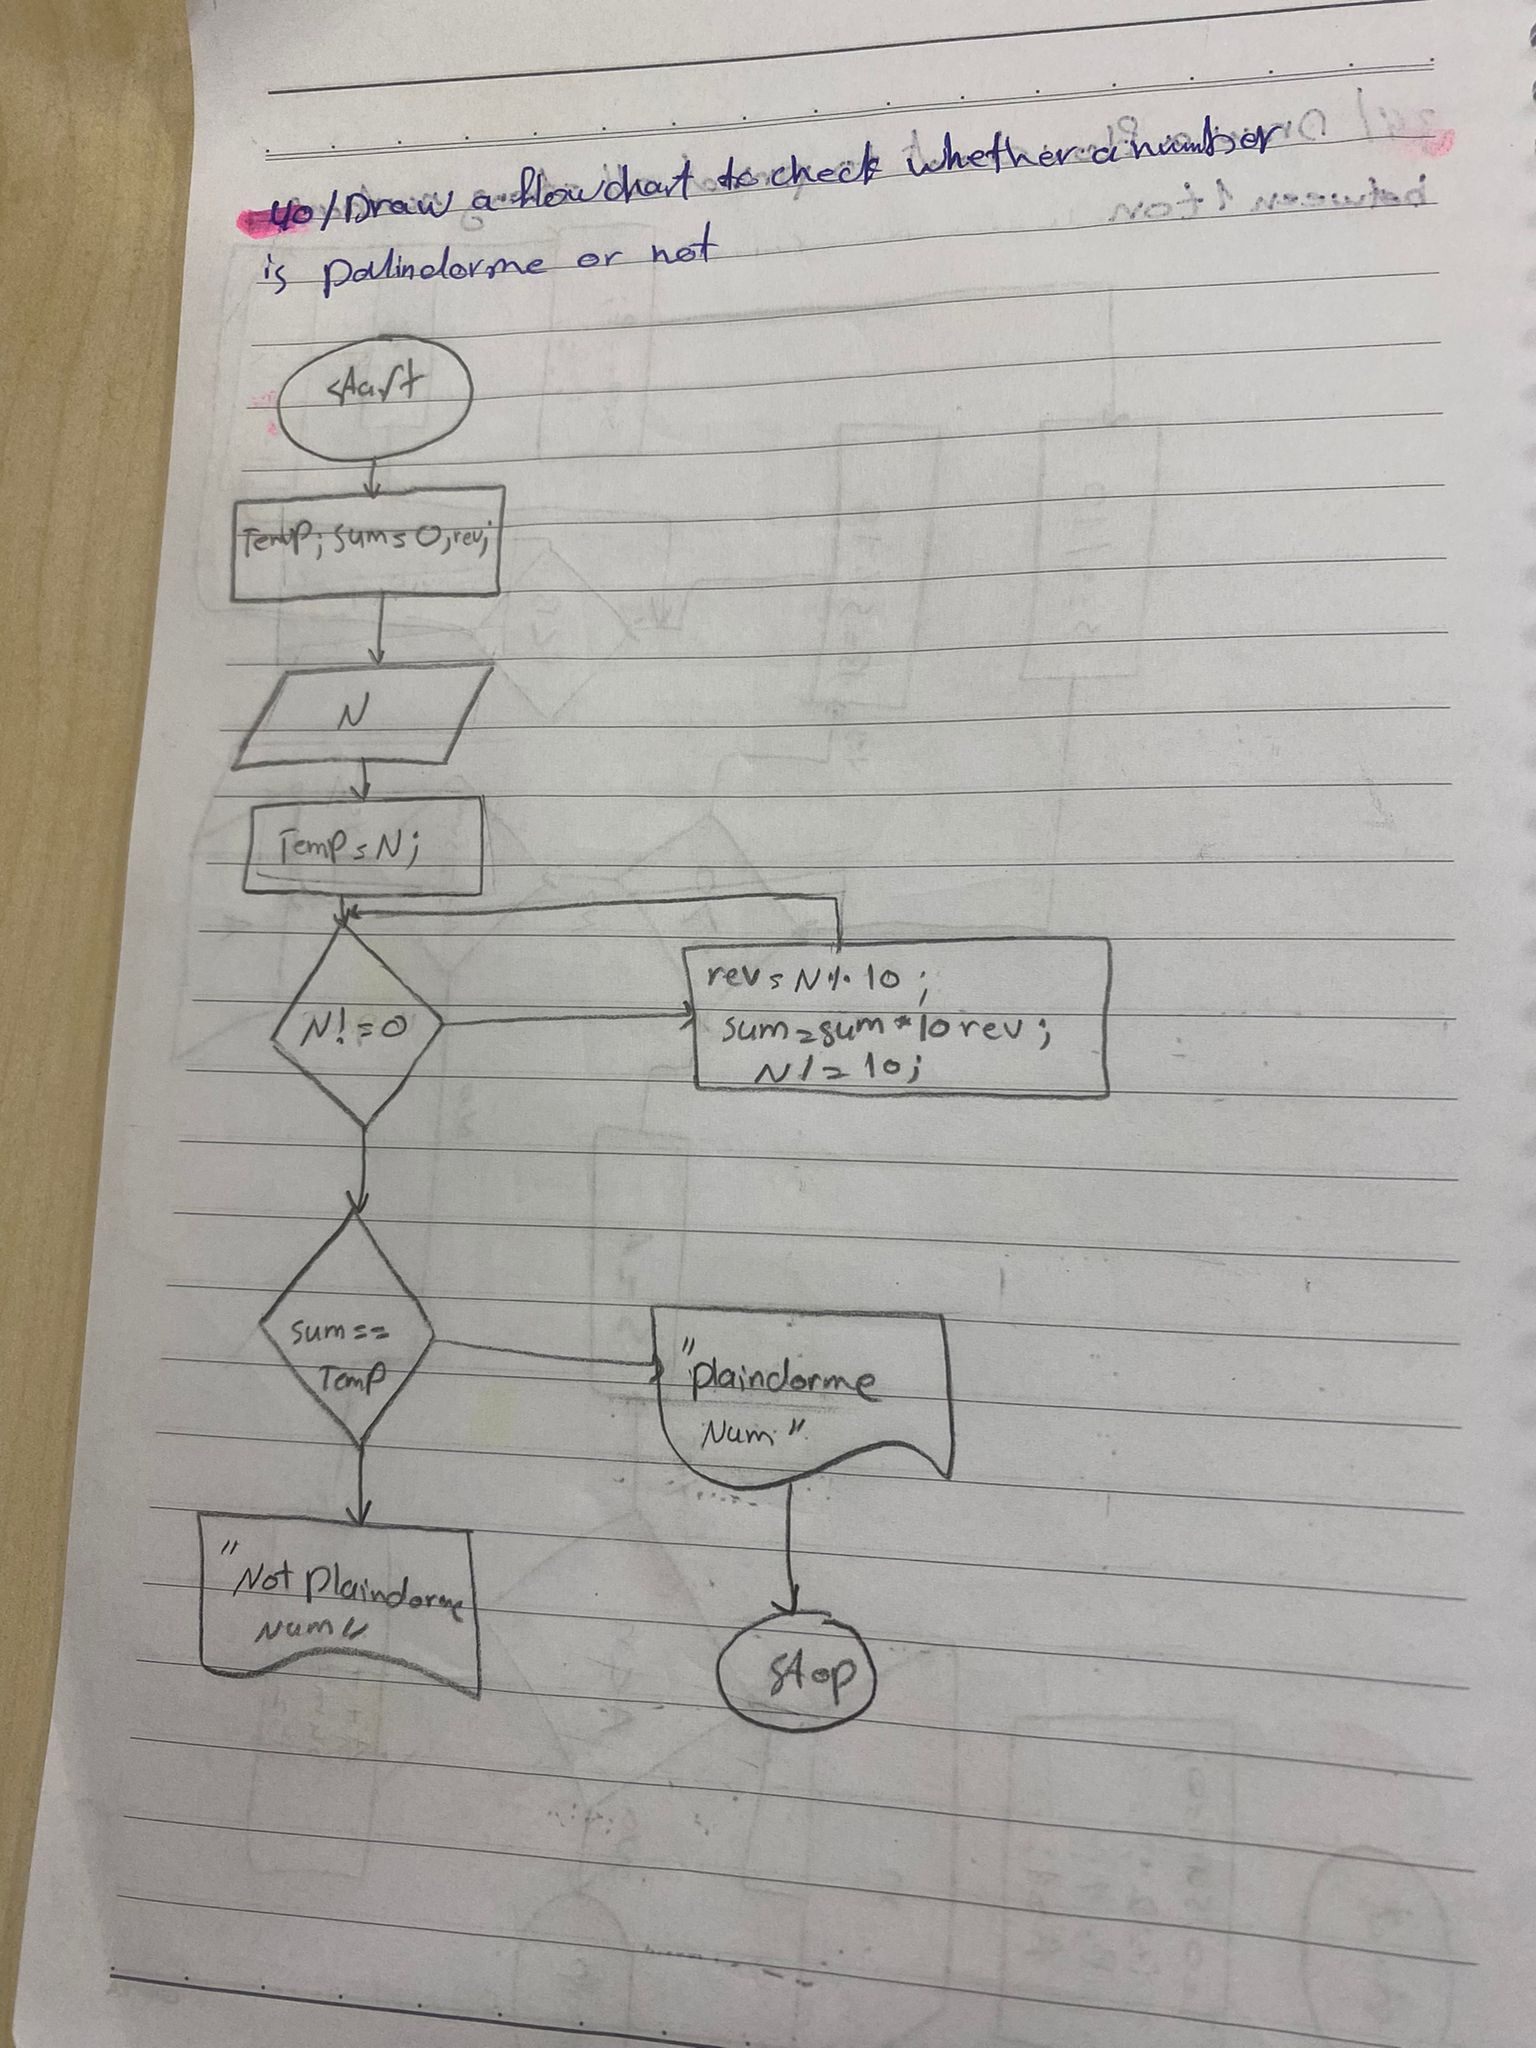 40/Draw a flowchart to check whether a number
is palindorme or not
start
Temp; sum = 0, rev;
N
Temp = N;
N! = 0
rev = N % 10 ;
sum = sum * 10 rev ;
N / = 10;
sum ==
Temp
"plaindorme
Num"
"Not plaindorme
Num"
stop